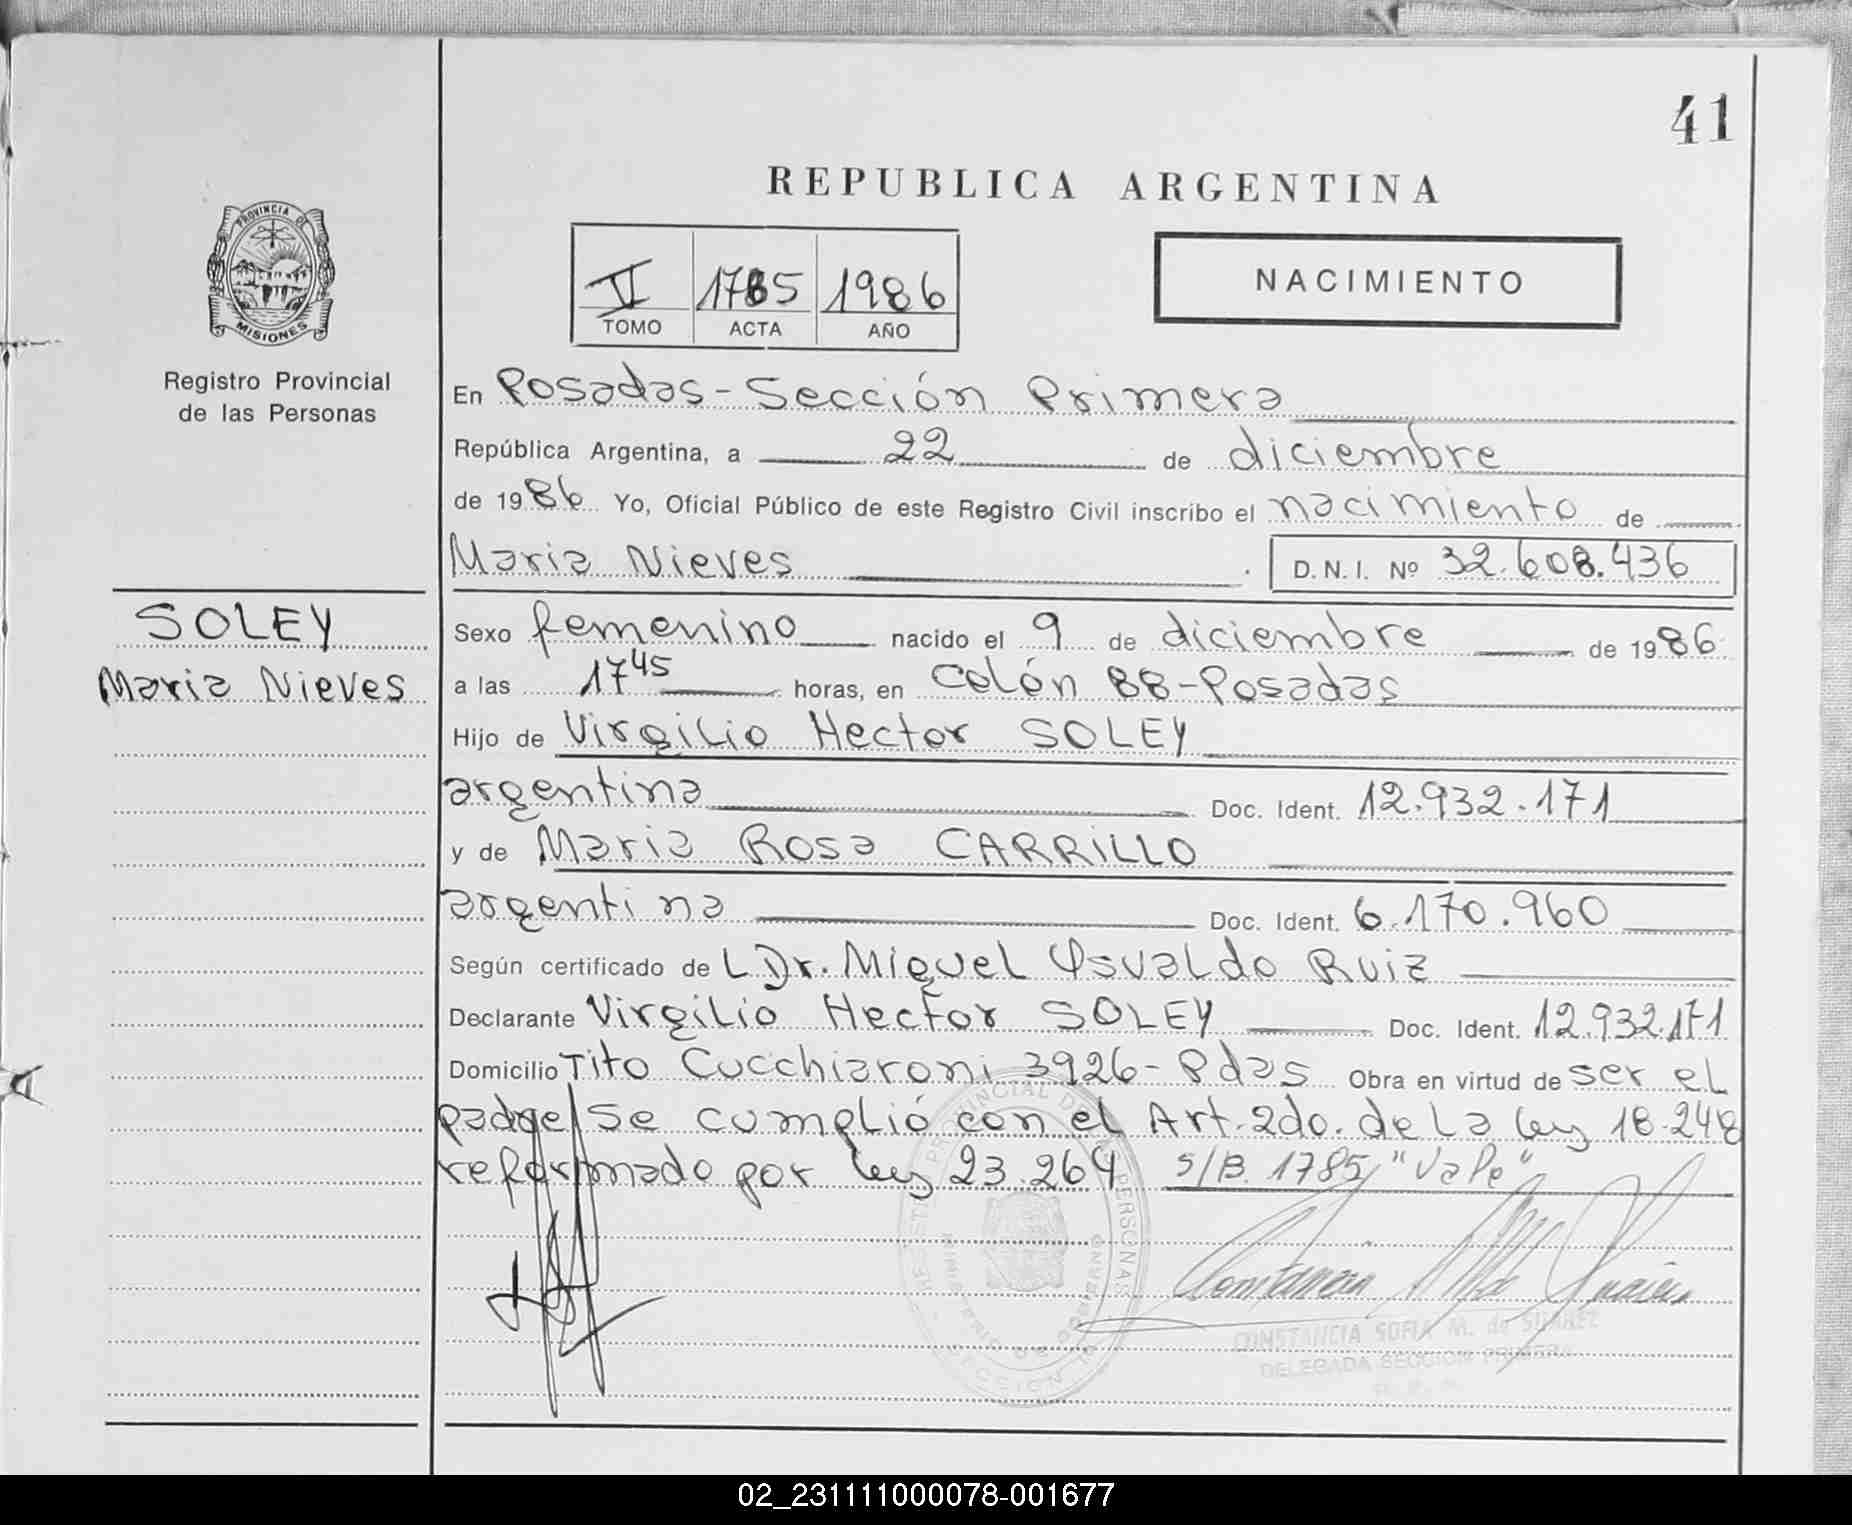 41
REPUBLICA ARGENTINA
PROVINCIA DE
MISIONES
Registro Provincial
de las Personas
V 1785 1986
TOMO ACTA AÑO
NACIMIENTO
En Posadas - Sección Primera
República Argentina, a 22 de diciembre
de 1986 Yo, Oficial Público de este Registro Civil inscribo el nacimiento de
Maria Nieves D.N.I. Nº 32.608.436
SOLEY
Maria Nieves
Sexo femenino nacido el 9 de diciembre de 1986
a las 17 45 horas, en Colón 88 - Posadas
Hijo de Virgilio Hector SOLEY
argentina Doc. Ident. 12.932.171
y de Maria Rosa CARRILLO
argentina Doc. Ident. 6.170.960
Según certificado de L Dr. Miguel Osvaldo Ruiz
Declarante Virgilio Hector SOLEY Doc. Ident. 12.932.171
Domicilio Tito Cucchiaroni 3926 - Pdas Obra en virtud de ser el
padre/ Se cumplió con el Art. 2do. de la ley 18.248
reformado por ley 23.264 S/B. 1785 "Vale"
CONSTANCIA SOFIA M. de SUAREZ
DELEGADA SECCION PRIMERA
02_231111000078-001677